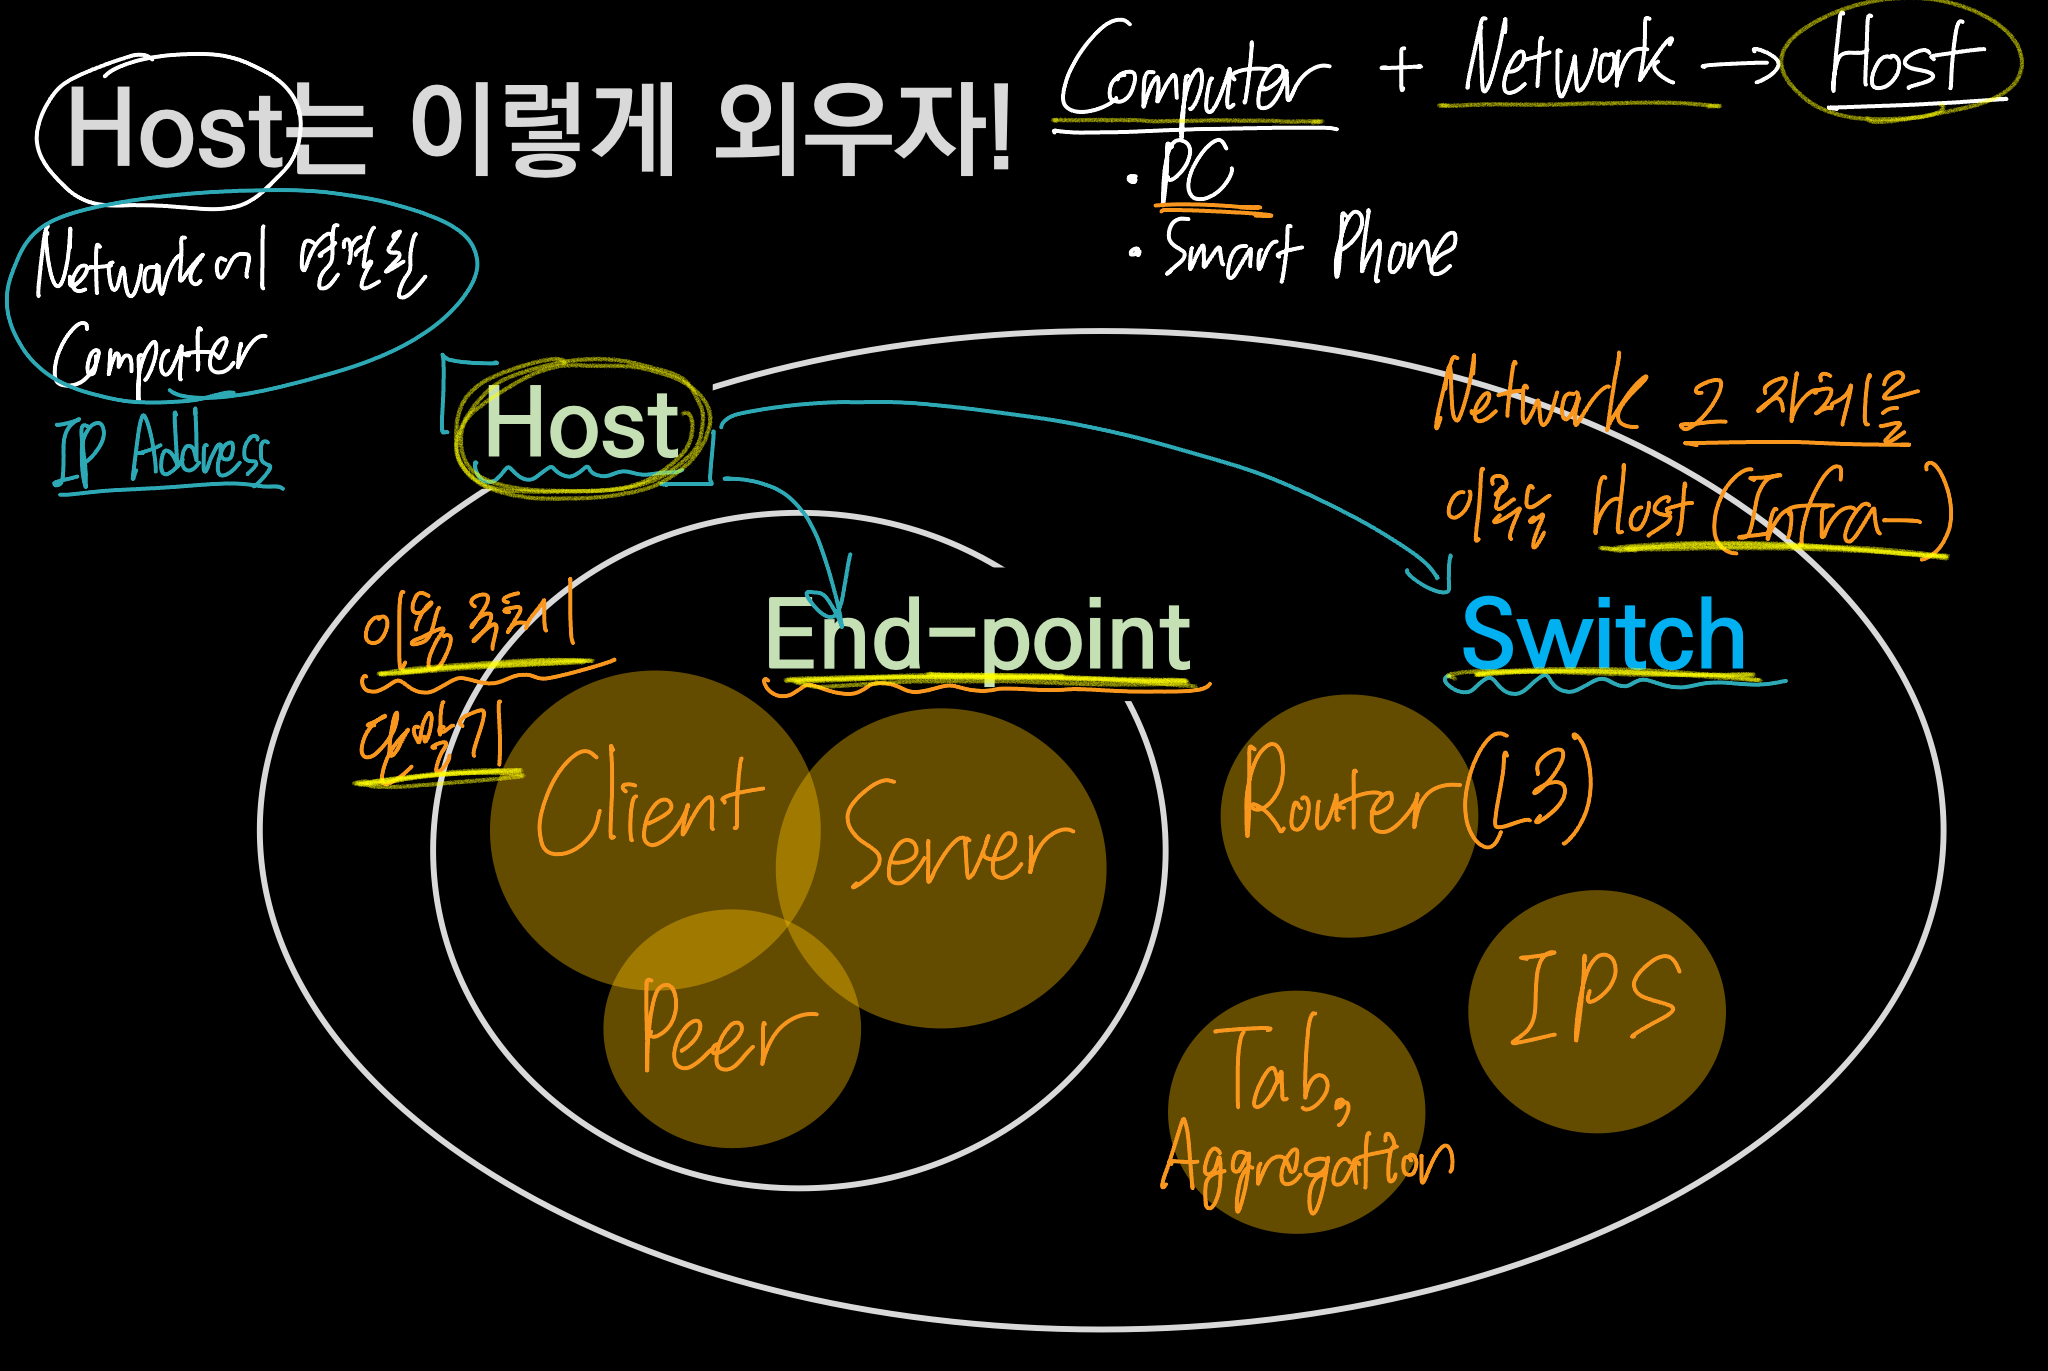 Host는 이렇게 외우자!
Computer + Network → Host
· PC
· Smart Phone
Network에 연결된
Computer
IP Address
Host
Network 그 자체를
이루는 Host (Infra-)
End-point
Switch
이용 주체
단말기
Client
Server
Peer
Router (L3)
IPS
Tab,
Aggregation